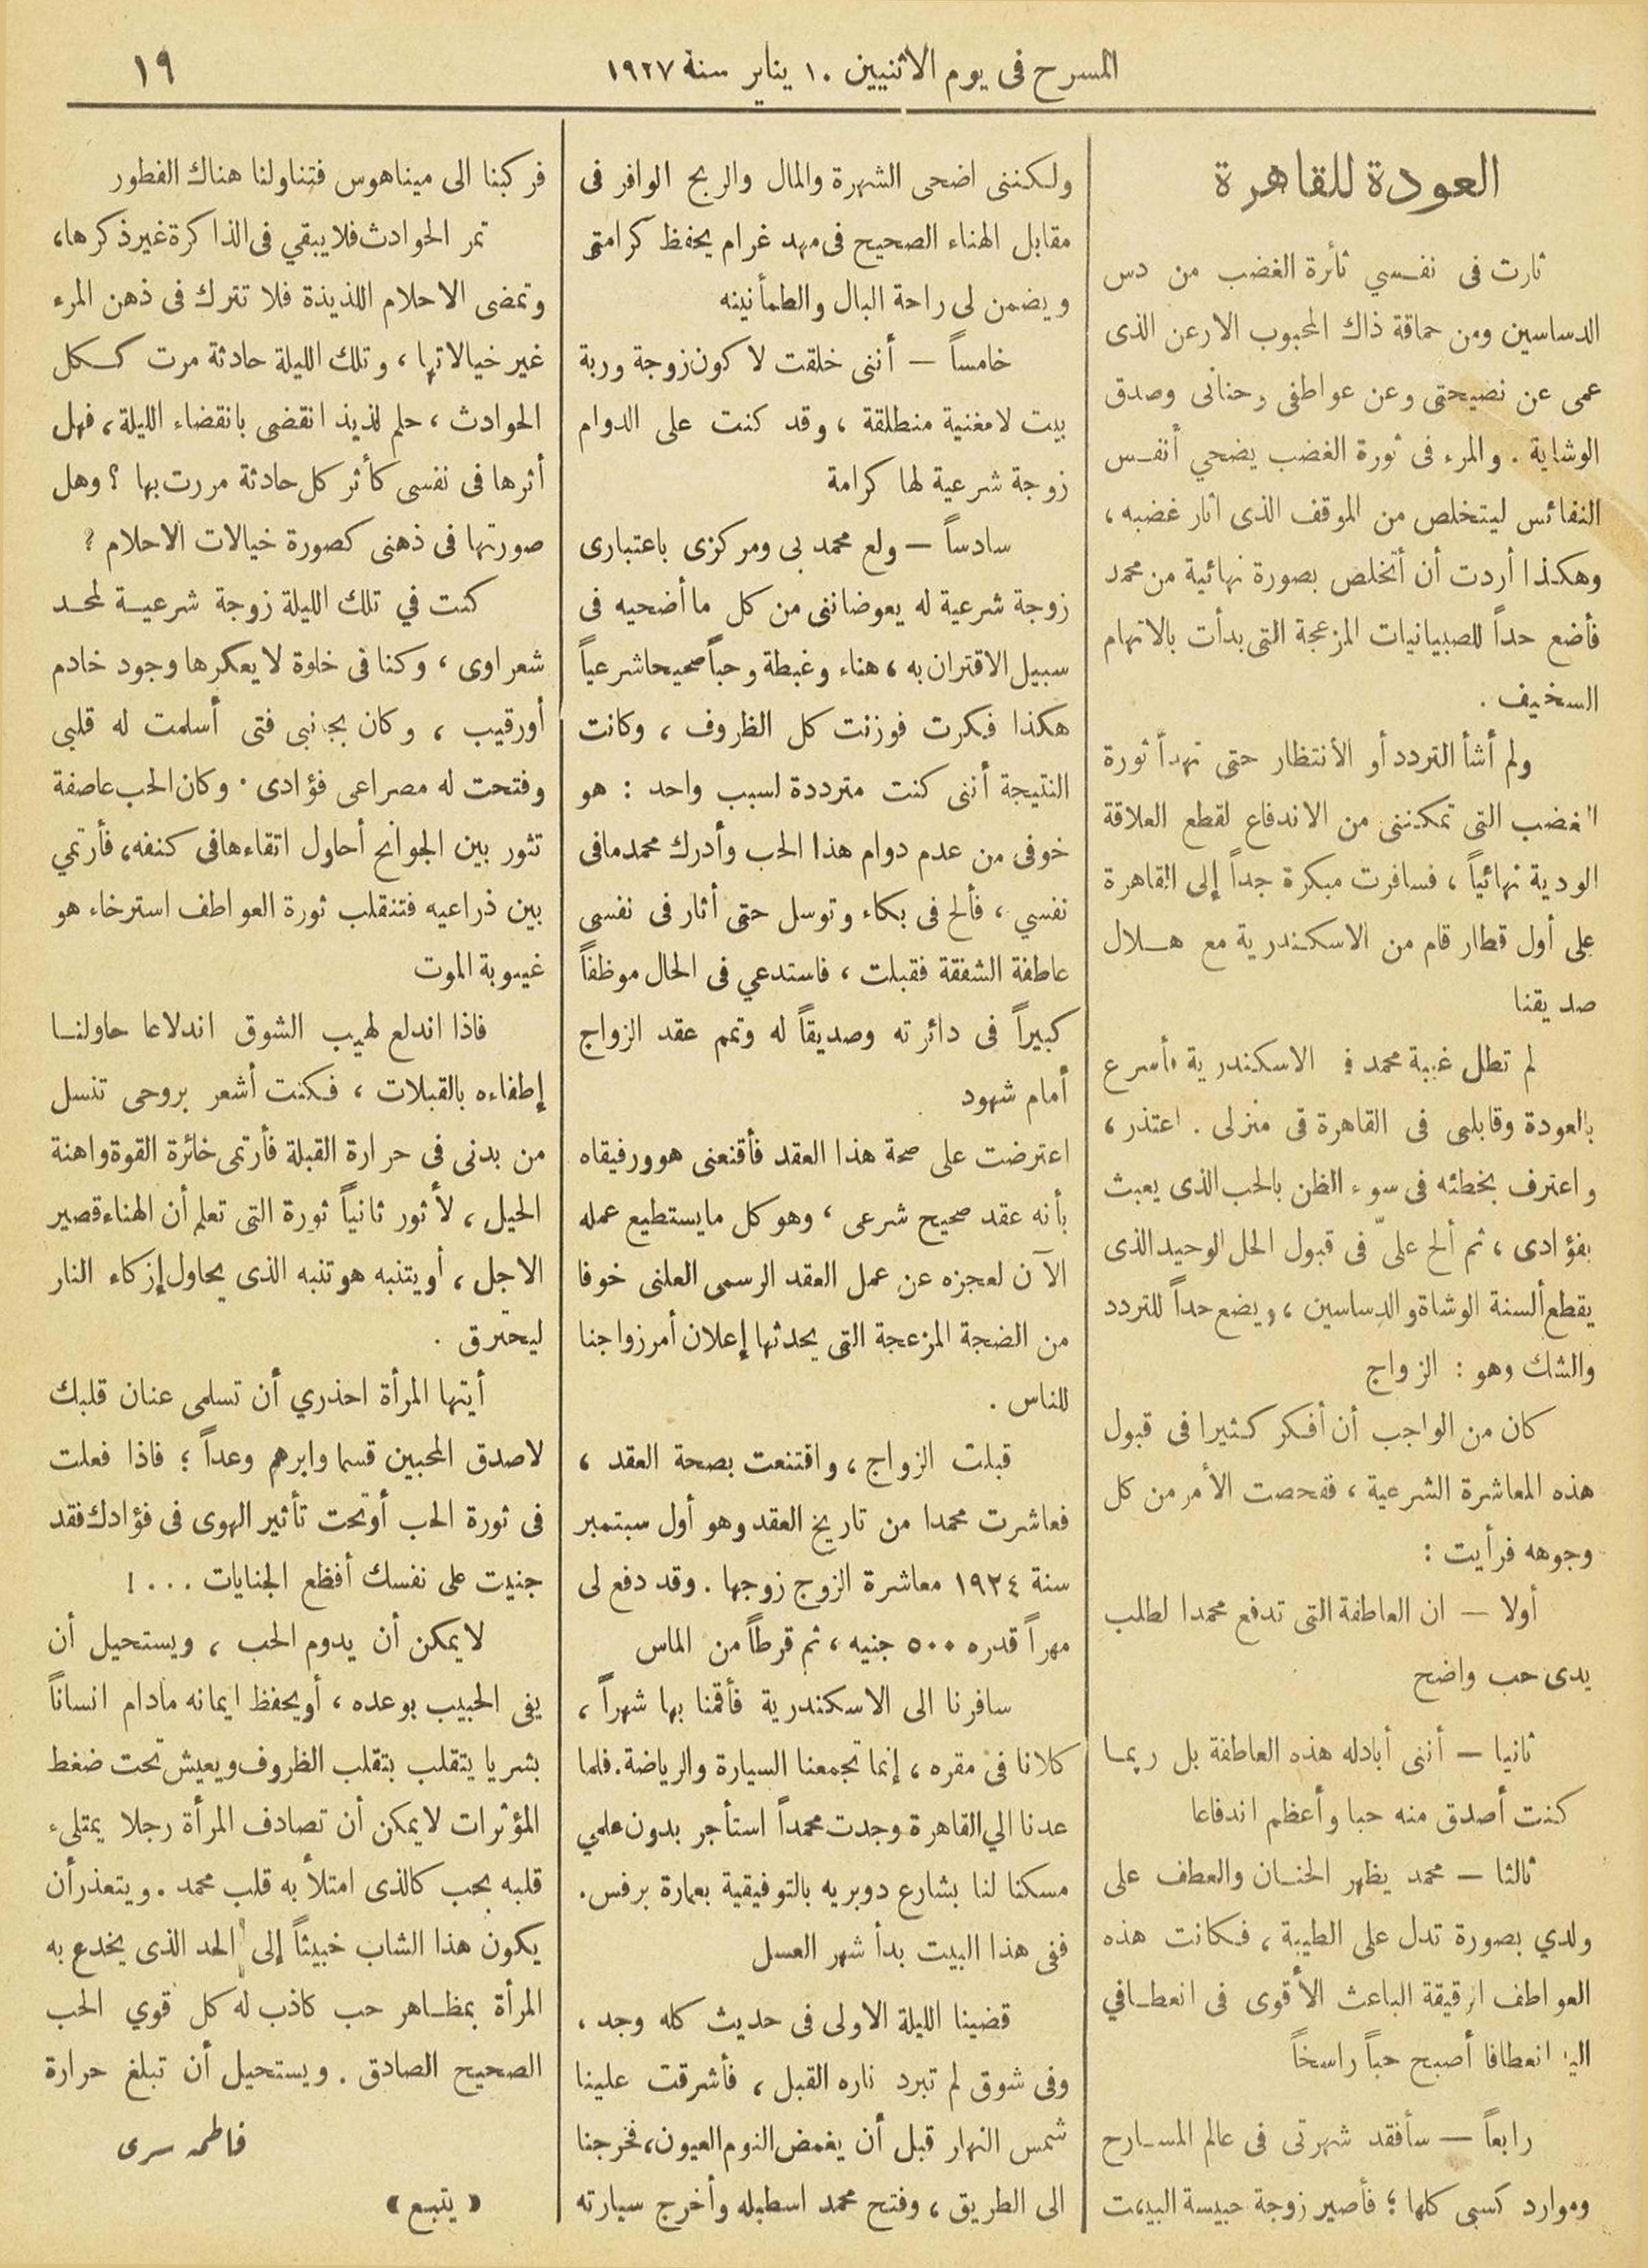 المسرح فى يوم الاثنيين ١٠ يناير سنة ١٩٢٧
١٩
العودة للقاهرة
ثارت فى نفسي ثأرة الغضب من دس
الدساسين ومن حماقة ذاك المحبوب الارعن الذى
عمى عن نصيحتى وعن عواطفى وحنانى وصدق
الوشاية . والمرء فى ثورة الغضب يضحي أنفس
النفائس ليتخلص من الموقف الذى اثار غضبه ،
وهكذا أردت أن أتخلص بصورة نهائية من محمد
فأضع حداً للصبيانيات المزعجة التى بدأت بالاتهام
السخيف .
ولم أشأ التردد أو الأنتظار حتى تهدأ ثورة
الغضب التى تمكننى من الاندفاع لقطع العلاقة
الودية نهائياً ، فسافرت مبكرة جداً إلى القاهرة
على أول قطار قام من الاسكندرية مع هلال
صديقنا
لم تطل غيبة محمد فى الاسكندرية فأسرع
بالعودة وقابلنى فى القاهرة فى منزلى . اعتذر ،
واعترف بخطئه فى سوء الظن بالحب الذى يعبث
بفؤادى ، ثم ألح علىّ فى قبول الحل الوحيد الذى
يقطع ألسنة الوشاة والدساسين ، ويضع حداً للتردد
والشك وهو : الزواج
كان من الواجب أن أفكر كثيرا فى قبول
هذه المعاشرة الشرعية ، ففحصت الأمر من كل
وجوهه فرأيت :
أولا — ان العاطفة التى تدفع محمدا لطلب
يدى حب واضح
ثانيا — أننى أبادله هذه العاطفة بل ربما
كنت أصدق منه حبا وأعظم اندفاعا
ثالثا — محمد يظهر الحنان والعطف على
ولدي بصورة تدل على الطيبة ، فكانت هذه
العواطف الرقيقة الباعث الأقوى فى انعطافي
اليه انعطافا أصبح حباً راسخاً
رابعاً — سأفقد شهرتى فى عالم المسارح
وموارد كسبى كلها ؛ فأصير زوجة حبيسة البيت
ولكننى اضحى الشهرة والمال والربح الوافر فى
مقابل الهناء الصحيح فى مهد غرام يحفظ كرامتى
ويضمن لى راحة البال والطمأنينه
خامساً — أننى خلقت لا كون زوجة وربة
بيت لا مغنية منطلقة ، وقد كنت على الدوام
زوجة شرعية لها كرامة
سادساً — ولع محمد بى ومركزى باعتبارى
زوجة شرعية له يعوضاننى من كل ما أضحيه فى
سبيل الاقتران به ، هناء وغبطة وحباً صحيحا شرعياً
هكذا فكرت فوزنت كل الظروف ، وكانت
النتيجة أننى كنت مترددة لسبب واحد : هو
خوفى من عدم دوام هذا الحب وأدرك محمد مافى
نفسي ، فألح فى بكاء وتوسل حتى أثار فى نفسى
عاطفة الشفقة فقبلت ، فاستدعي فى الحال موظفاً
كبيراً فى دائرته وصديقاً له وتمم عقد الزواج
أمام شهود
اعترضت على صحة هذا العقد فأقنعنى هو ورفيقاه
بأنه عقد صحيح شرعى ، وهو كل مايستطيع عمله
الآن لعجزه عن عمل العقد الرسمى العلنى خوفا
من الضجة المزعجة التى يحدثها إعلان أمر زواجنا
للناس .
قبلت الزواج ، واقتنعت بصحة العقد ،
فعاشرت محمدا من تاريخ العقد وهو أول سبتمبر
سنة ١٩٢٤ معاشرة الزوج زوجها . وقد دفع لى
مهراً قدره ٥٠٠ جنيه ، ثم قرطاً من الماس
سافرنا الى الاسكندرية فأقمنا بها شهراً ،
كلانا فى مقره ، إنما تجمعنا السيارة والرياضة . فلما
عدنا الي القاهرة وجدت محمداً استأجر بدون علمي
مسكنا لنا بشارع دوبريه بالتوفيقية بعمارة برفس .
ففى هذا البيت بدأ شهر العسل
قضينا الليلة الاولى فى حديث كله وجد ،
وفى شوق لم تبرد ناره القبل ، فأشرقت علينا
شمس النهار قبل أن يغمض النوم العيون ، فخرجنا
الى الطريق ، وفتح محمد اسطبله وأخرج سيارته
فركبنا الى ميناهوس فتناولنا هناك الفطور
تمر الحوادث فلا يبقي فى الذاكرة غير ذكرها ،
وتمضى الاحلام اللذيذة فلا تترك فى ذهن المرء
غير خيالاتها ، وتلك الليلة حادثة مرت ككل
الحوادث ، حلم لذيذ انقضى بانقضاء الليلة ، فهل
أثرها فى نفسى كأثر كل حادثة مررت بها ؟ وهل
صورتها فى ذهنى كصورة خيالات الاحلام ؟
كنت في تلك الليلة زوجة شرعية لمحمد
شعراوى ، وكنا فى خلوة لا يعكرها وجود خادم
أورقيب ، وكان بجانبى فتى أسلمت له قلبى
وفتحت له مصراعى فؤادى . وكان الحب عاصفة
تثور بين الجوانح أحاول اتقاءها فى كنفه ، فأرتمي
بين ذراعيه فتنقلب ثورة العواطف استرخاء هو
غيبوبة الموت
فاذا اندلع لهيب الشوق اندلاعا حاولنا
إطفاءه بالقبلات ، فكنت أشعر بروحى تنسل
من بدنى فى حرارة القبلة فأرتمى خائرة القوة واهنة
الحيل ، لأثور ثانياً ثورة التى تعلم أن الهناء قصير
الاجل ، أو يتنبه هو تنبه الذى يحاول إزكاء النار
ليحترق .
أيتها المرأة احذري أن تسلمى عنان قلبك
لاصدق المحبين قسما وابرهم وعداً ؛ فاذا فعلت
فى ثورة الحب أو تحت تأثير الهوى فى فؤادك فقد
جنيت على نفسك أفظع الجنايات . . . !
لا يمكن أن يدوم الحب ، ويستحيل أن
يفى الحبيب بوعده ، أو يحفظ ايمانه مادام انساناً
بشريا يتقلب بتقلب الظروف ويعيش تحت ضغط
المؤثرات لا يمكن أن تصادف المرأة رجلا يمتلىء
قلبه بحب كالذى امتلأ به قلب محمد . ويتعذر أن
يكون هذا الشاب خبيثاً إلى الحد الذى يخدع به
المرأة بمظاهر حب كاذب له كل قوي الحب
الصحيح الصادق . ويستحيل أن تبلغ حرارة
فاطمه سرى
« يتبع »